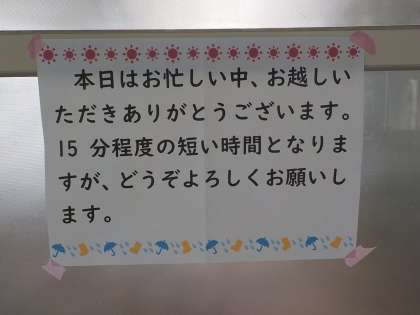 本日はお忙しい中、お越しい
ただきありがとうございます。
15 分程度の短い時間となりま
すが、どうぞよろしくお願いし
ます。